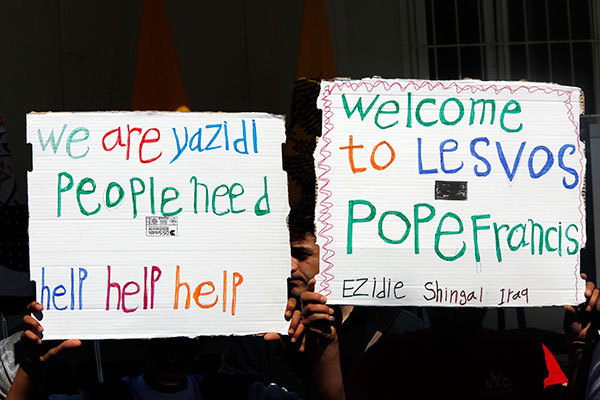 We are yazidI
PeoPLe need
help help help
welcome
to LESVOS
POPE Francis
EZidIe Shingal Iraq